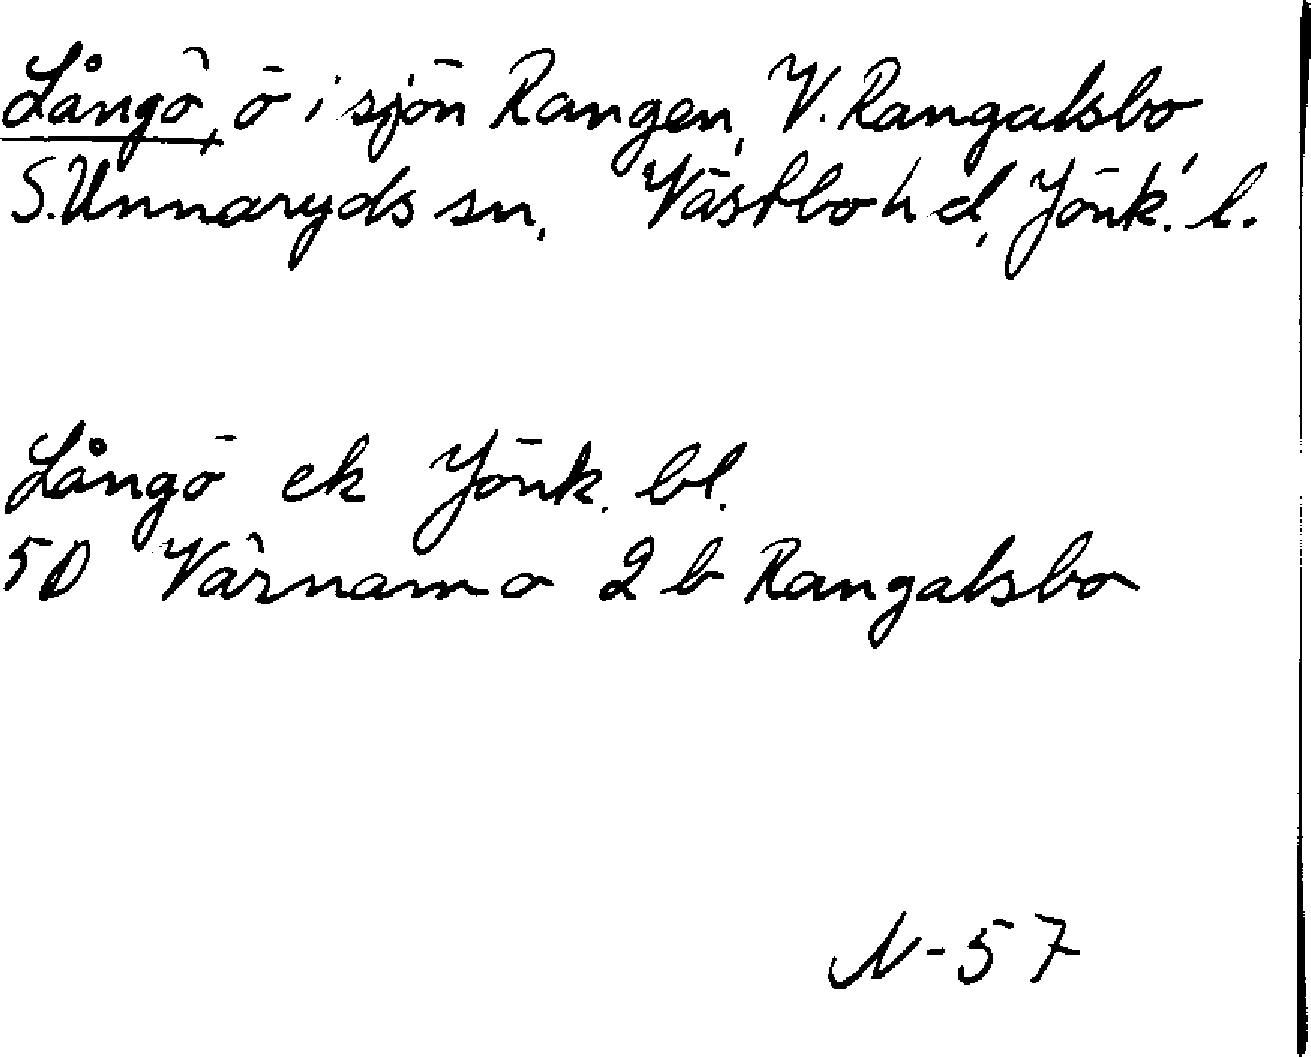 Långö, ö i sjön Rangen, V. Rangalsbo,
S. Unnaryds sn, Västbo hd, Jönk. l.
Långö ek Jönk. bl.
5D Värnamo 2 b Rangalsbo
N-57